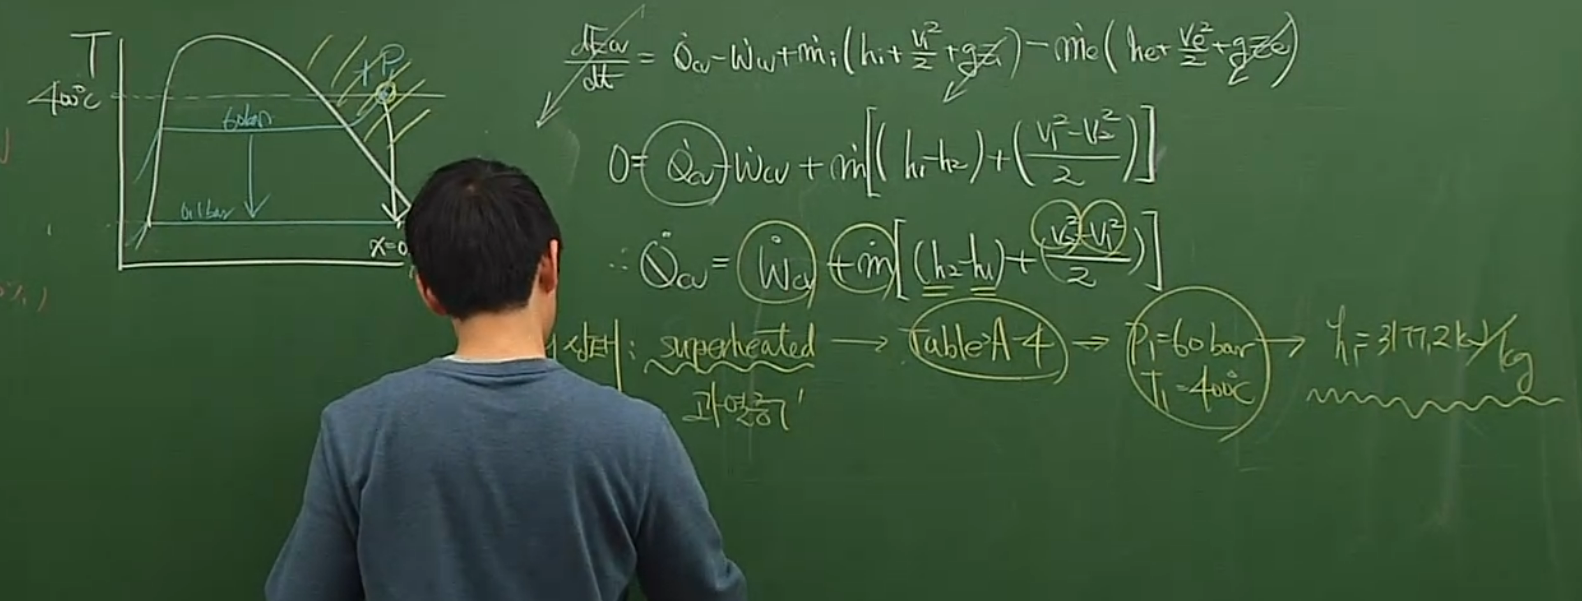 T
400°C
60bar
0.1bar
P
x=0
dEcv/dt = Q̇cv - Ẇcv + ṁi(hi + Vi²/2 + gzi) - ṁe(he + Ve²/2 + gze)
0 = Q̇cv - Ẇcv + ṁ[(h1-h2) + (V1²-V2²/2)]
∴ Q̇cv = Ẇcv + ṁ[(h2-h1) + (V2²-V1²/2)]
: superheated → Table A-4 ⇒ P1=60bar → h1=3177.2kJ/kg
T1=400°C
과열증기